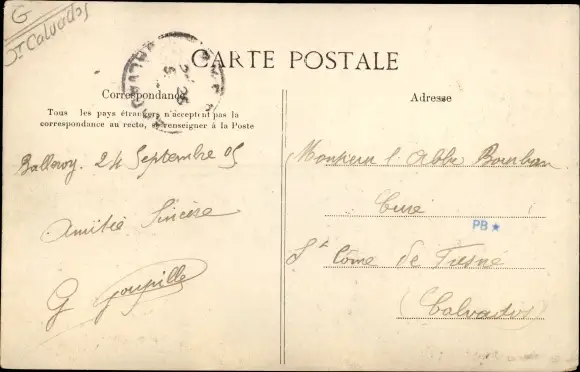 G
Dt Calvados
CARTE POSTALE
Correspondance
Tous les pays étrangers n'acceptent pas la
correspondance au recto, se renseigner à la Poste
Balleroy. 24 Septembre 05
Amitié Sincère
G Goupille
Adresse
Monsieur l'Abbé
Curé
PB★
St Côme de Fresné
(Calvados)